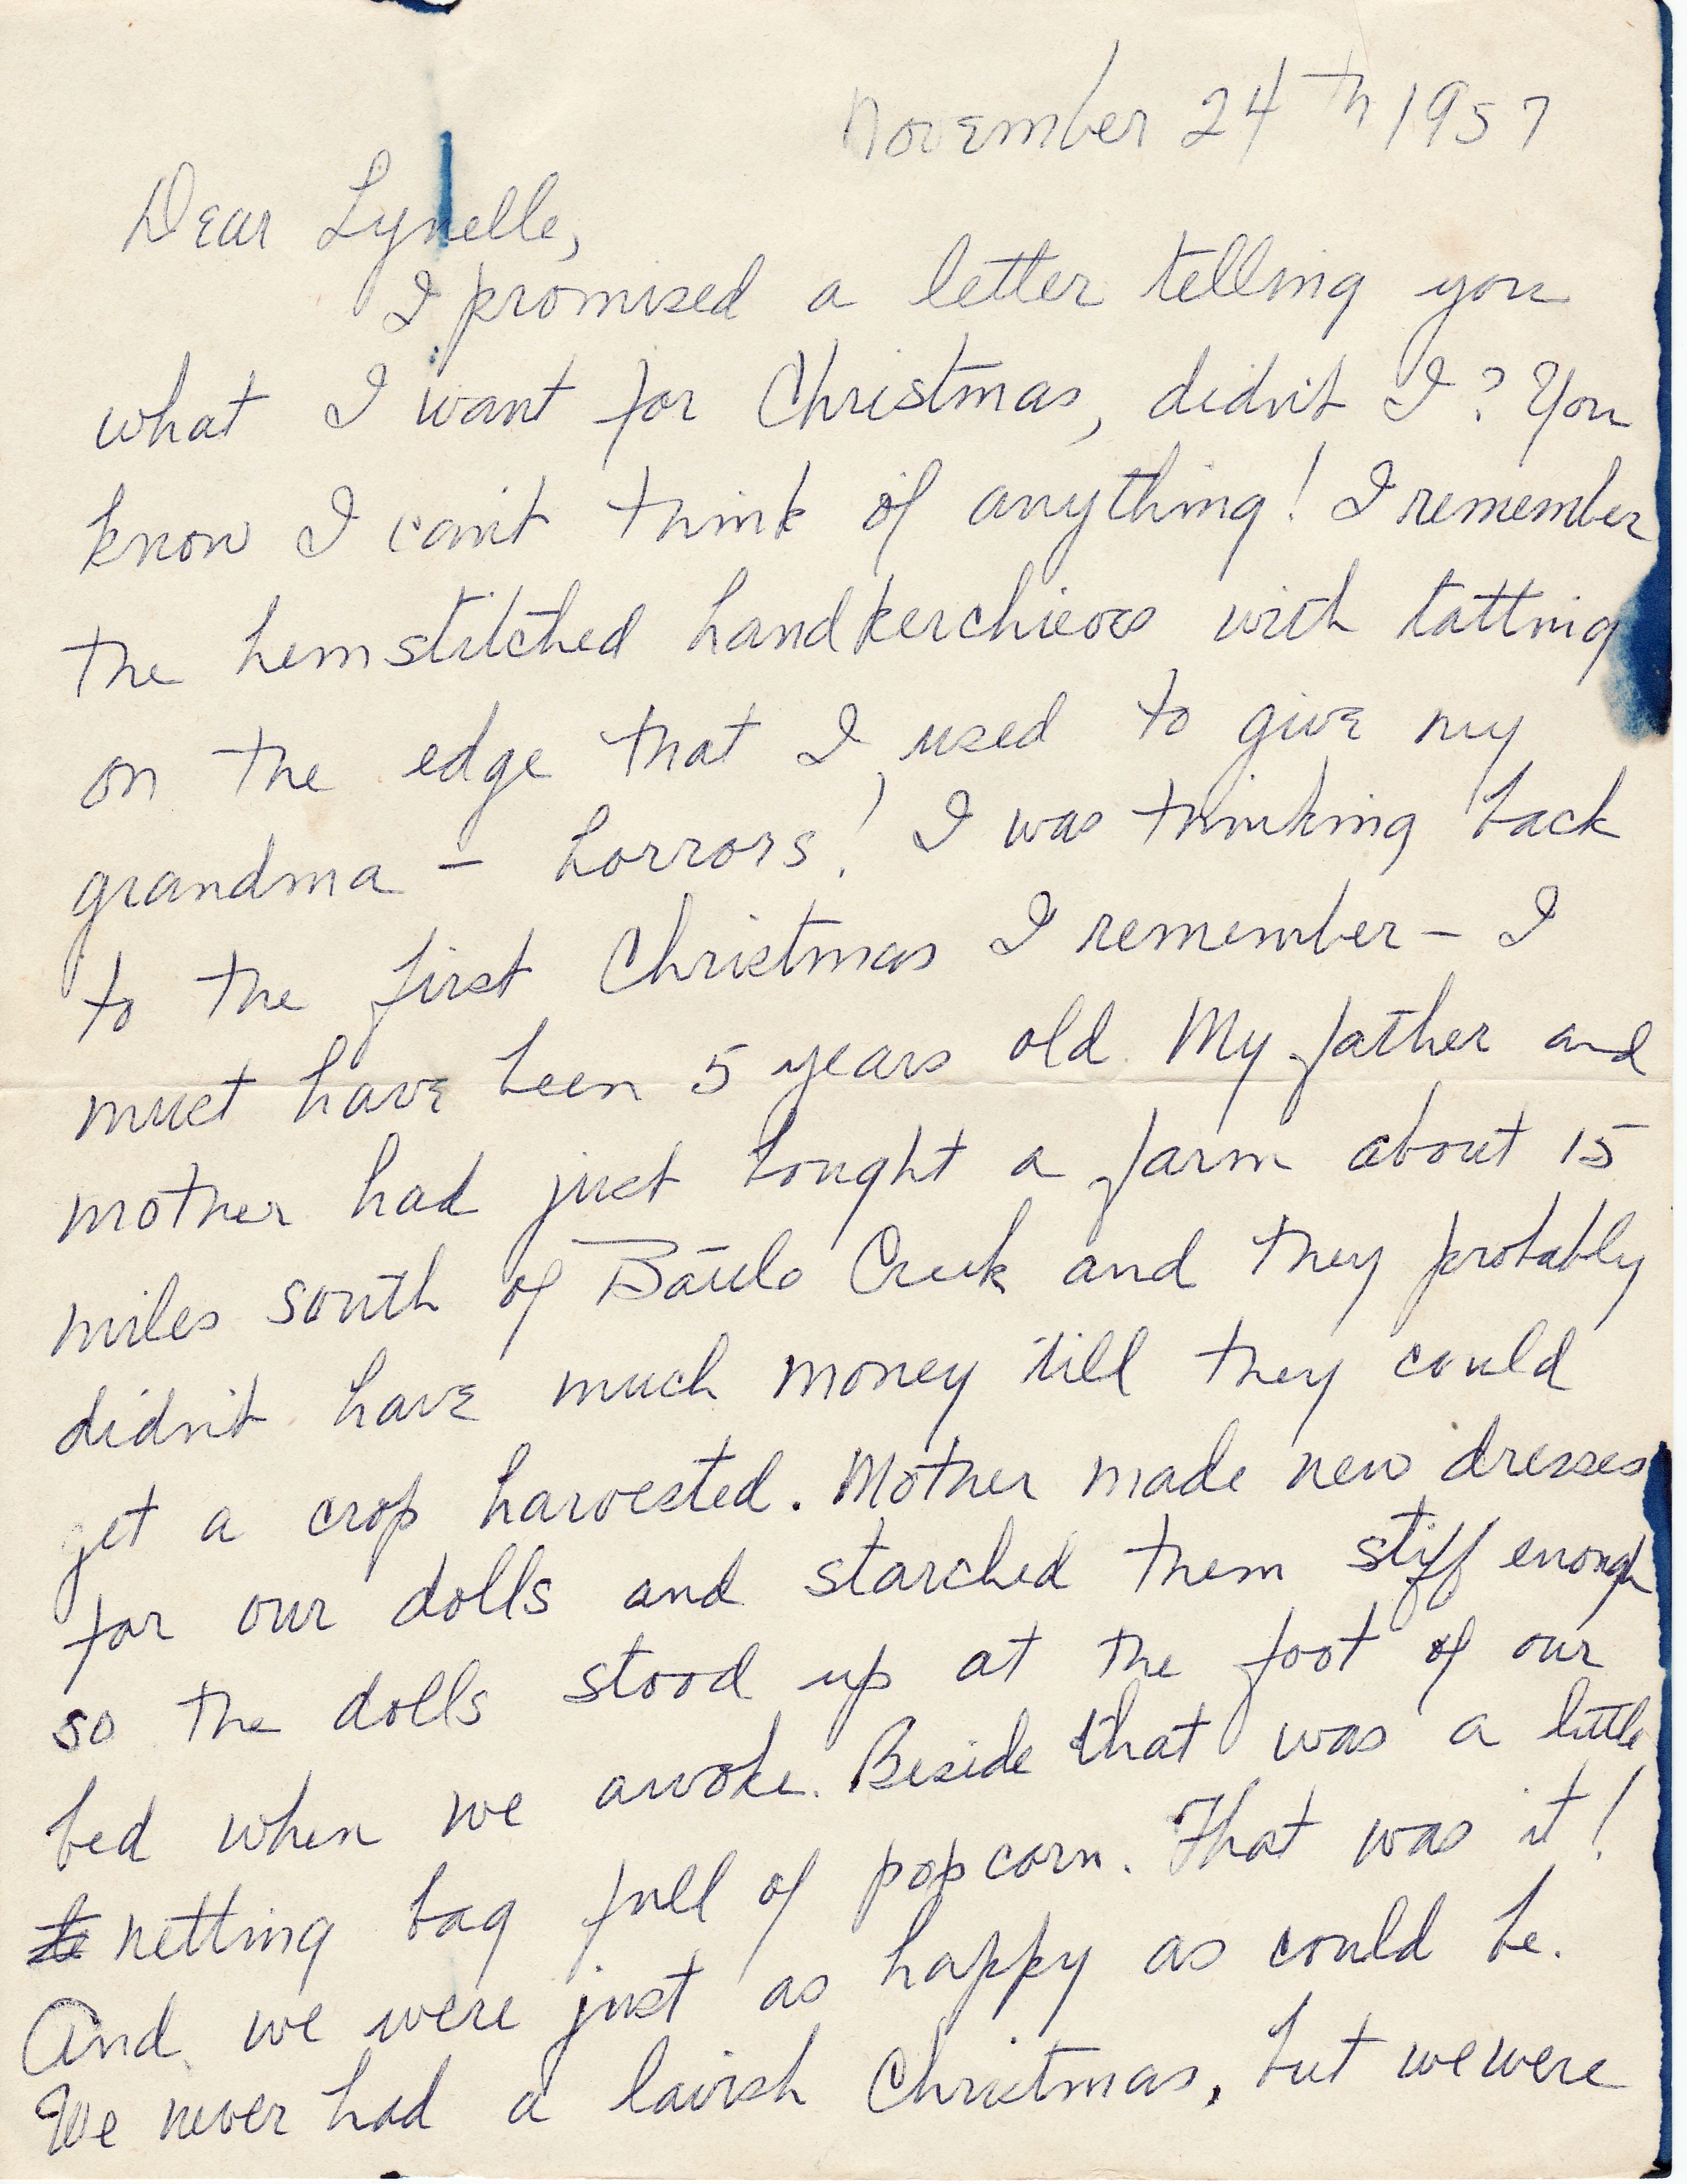 November 24th 1957
Dear Lynelle,
I promised a letter telling you
what I want for Christmas, didn't I? You
know I can't think of anything! I remember
the hemstitched handkerchieves with tatting
on the edge that I used to give my
grandma - horrors! I was thinking back
to the first Christmas I remember - I
must have been 5 years old. My father and
mother had just bought a farm about 15
miles south of Battle Creek and they probably
didn't have much money till they could
get a crop harvested. Mother made new dresses
for our dolls and starched them stiff enough
so the dolls stood up at the foot of our
bed when we awoke. Beside that was a little
netting bag full of popcorn. That was it!
And we were just as happy as could be.
We never had a lavish Christmas, but we were